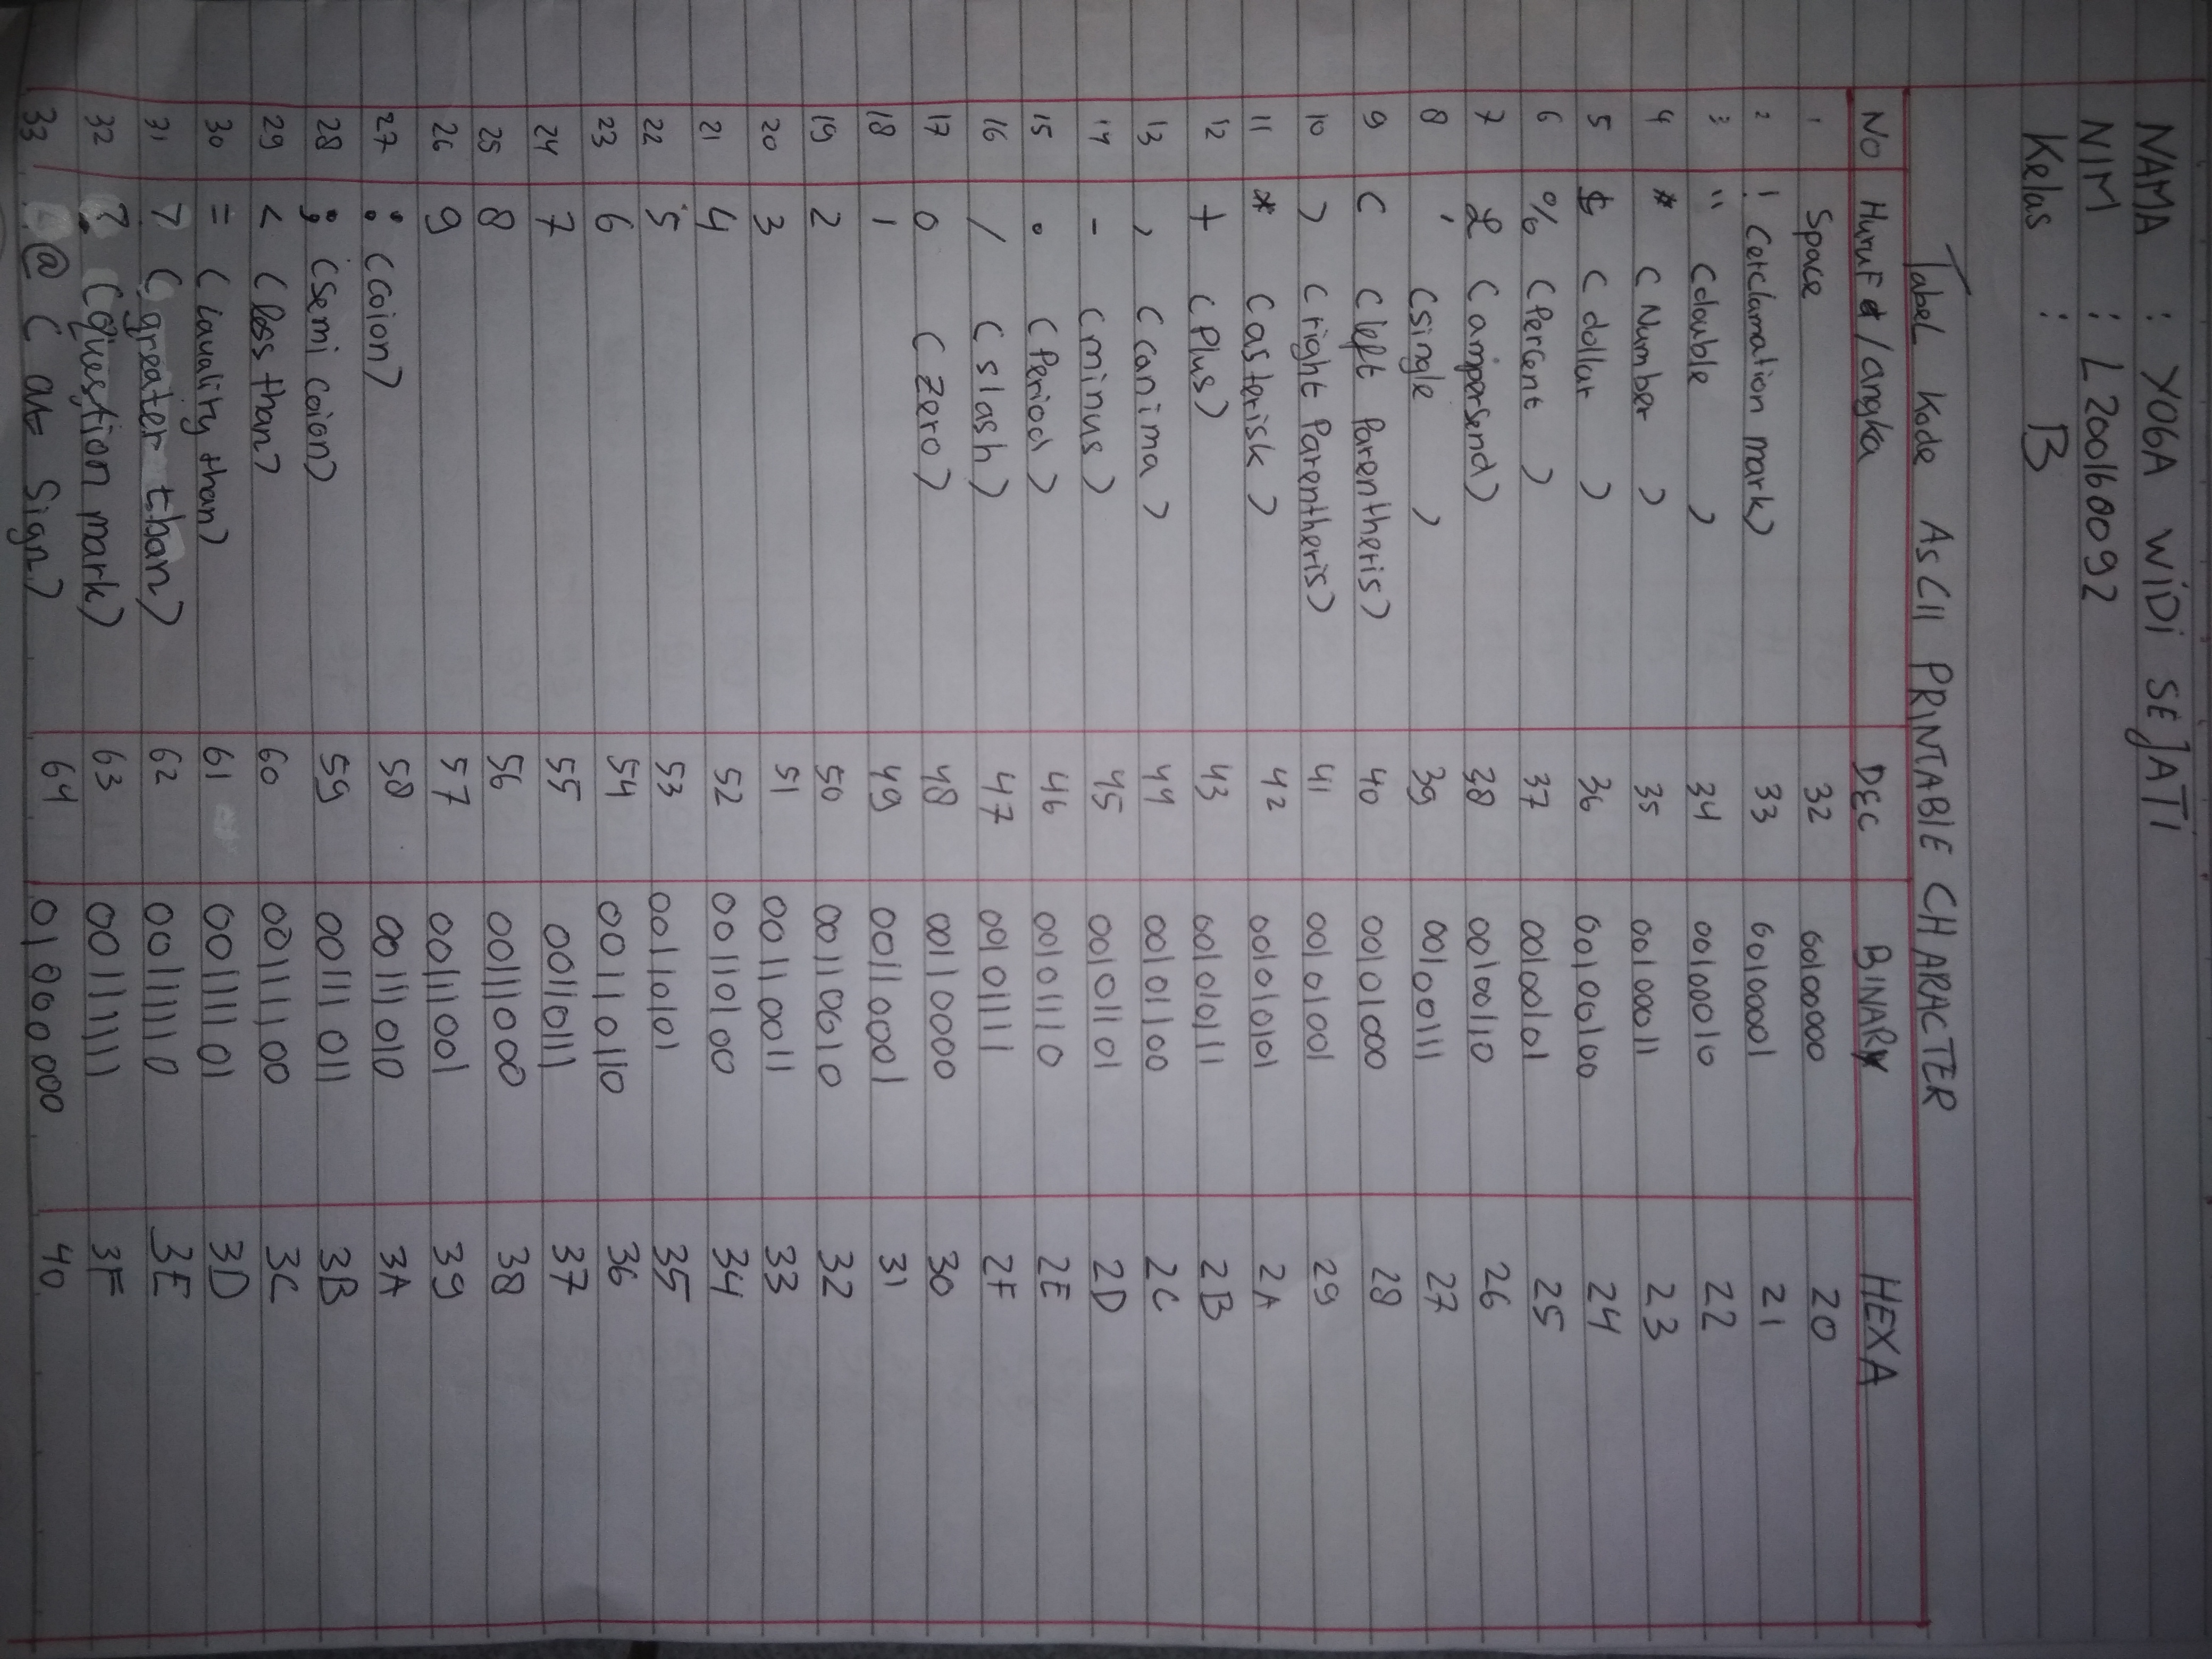 NAMA : YOGA WIDI SEJATI
NIM : L200160092
Kelas : B
Tabel Kode ASCII PRINTABLE CHARACTER
NO Huruf / angka DEC BINARY HEXA
1 Space 32 00100000 20
2 ! (etclamation mark) 33 00100001 21
3 " (double ) 34 00100010 22
4 # (Number ) 35 00100011 23
5 $ (dollar ) 36 00100100 24
6 % (Percent ) 37 00100101 25
7 £ (ampersend) 38 00100110 26
8 ' (single ) 39 00100111 27
9 ( (left Parentheris) 40 00101000 28
10 ) (right Parentheris) 41 00101001 29
11 * (asterisk) 42 001010101 2A
12 + (Plus) 43 001010111 2B
13 , (canima) 44 00101100 2C
14 - (minus) 45 00101101 2D
15 . (Period) 46 00101110 2E
16 / (slash) 47 00101111 2F
17 0 (Zero) 48 00110000 30
18 1 49 00110001 31
19 2 50 00110010 32
20 3 51 00110011 33
21 4 52 00110100 34
22 5 53 00110101 35
23 6 54 00110110 36
24 7 55 00110111 37
25 8 56 00111000 38
26 9 57 00111001 39
27 : (coion) 58 00111010 3A
28 ; (semi coion) 59 00111011 3B
29 < (less than) 60 00111100 3C
30 = ( than) 61 00111101 3D
31 > (greater than) 62 00111110 3E
32 ? (Question mark) 63 00111111 3F
33 @ (at Sign) 64 01000000 40